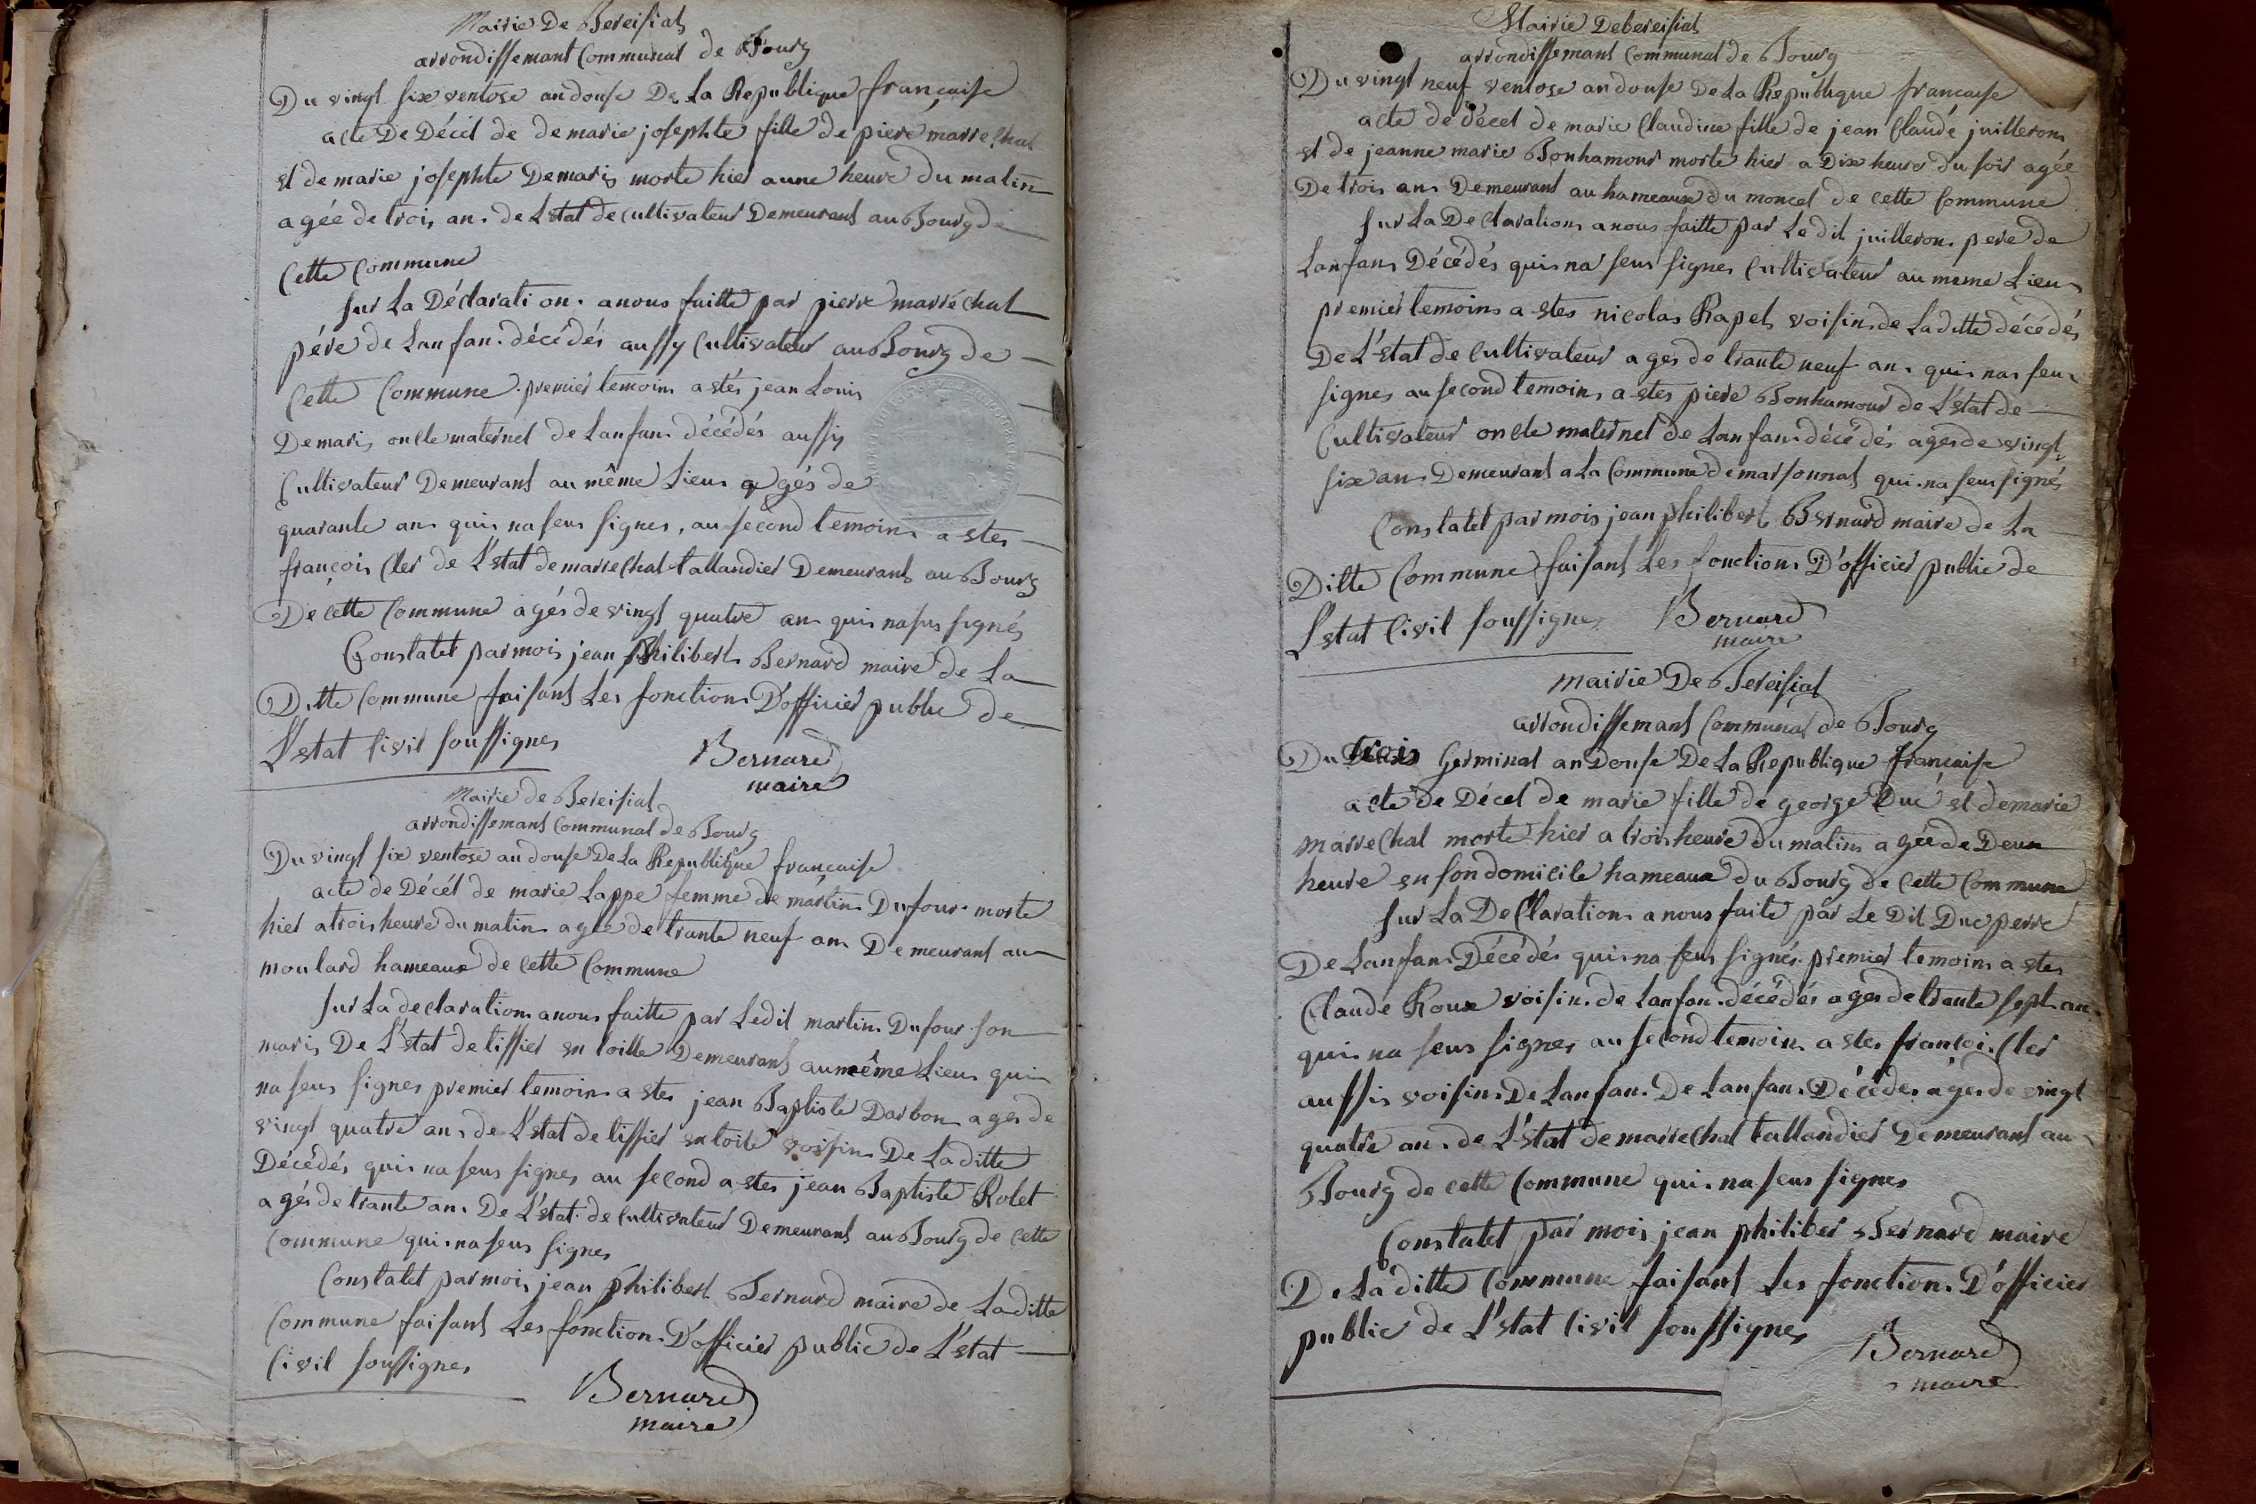 Mairie De Bereisiat
arrondissemant Communal de Bourg
Du vingt six ventose an douse De La Republique francaise
acte De Décèt de de marie josephte fille de piere marrechal
et de marie josephte Demaris morte hier a une heure du matin
agée de trois ans de L'état de cultivateur Demeurant au Bourg de
Cette Commune
sur La Déclaration a nous faitte par pierre marréchal
pére de Lanfan décédés aussy Cultivateur au Bourg de
Cette Commune premier temoins a étés jean Louis
Demaris oncle maternel de Lanfans décédés aussy
Cultivateur Demeurant au même Lieus agés de
quarante ans quis na seus signes, au second temoins a etes
françois Cler de L'état de marrechal tallandier Demeurant au Bourg
De cette Commune agés de vingt quatre ans quis na sus signés
Constatet par mois jean philibert Bernard maire de La
Ditte Commune faisant Les fonctions D'officier public de
L'état Civil soussignes
Bernard
maire
Mairie de Bereisiat
arrondissemant Communal de Bourg
Du vingt six ventose an douse De La Republique francaise
acte de Décèt de marie Lappe femme de martin Dufour morte
hier a trois heure du matin agée de trante neuf ans Demeurant au
moulard hameaux de cette Commune
sur La declarations a nous faitte par Ledit martin Dufour son
maris De L'état de tissier en toille Demeurant au même Lieus quis
na seus signes premier temoins a etes jean Baptiste Darbon ages de
vingt quatre ans de L'état de tissier en toile voisins De Laditte
Décédés quis na seus signes au second a etes jean Baptiste Rolet
agés de trante ans De L'état de Cultivateur Demeurant au Bourg de cette
Commune quis na seus signes
Constatet par mois jean philibert Bernard maire de Laditte
Commune faisant Les fonctions D'officier public de L'état
Civil soussignes
Bernard
maire
Mairie Debereisiat
arrondissemant Communal de Bourg
Du vingt neuf ventose an douse De La Republique francaise
acte de décet de marie Claudine fille de jean Claude juillerons
et de jeanne marie Bonhamour morte hier a Dix heure du soir agée
De trois ans Demeurant au hameaux du moncel de cette Commune
sur La Declarations a nous faitte par Le dit juillerons pere de
Lanfans Décédés quis na seus signes Cultivateur au meme Lieus
premier temoins a etes nicolas Rapet voisins de Laditte décédés
De L'état de Cultivateur ages de trante neuf ans quis nas seus
signes au second temoins a etes piere Bonhamour de L'état de
Cultivateur oncle maternel de Lanfans décédés ages de vingt
six ans Demeurant a La Commune de marsonnat quis na seus signés
Constatet par mois jean philibert Bernard maire de La
Ditte Commune faisant Les fonctions D'officier public de
L'état Civil soussignes
Bernard
maire
mairie De Bereisiat
arrondissemant Communal de Bourg
Du trois Germinal an Douse De La Republique francaise
acte de Décet de marie fille de george Duc et de marie
marrechal morte hier a trois heure du matins agée de Deux
heure en son domicile hameaux du Bourg de Cette Commune
sur La Declarations a nous faite par Le Dit Duc perre
De Lanfans Décédés quis na seus signés premier temoins a etes
Claude Roux voisins de Lanfans décédés ages de trante sept ans
quis na seus signes au second temoins a etes francois Cler
aussis voisins De Lanfans De Lanfans Décédes ages de vingt
quatre ans de L'état de marrechal tallandier Demeurant au
Bourg de cette Commune quis na seus signes
Constatet par mois jean philiber Bernard maire
De La ditte Commune faisant Les fonctions D'officier
public de L'état Civil soussignes
Bernard
maire